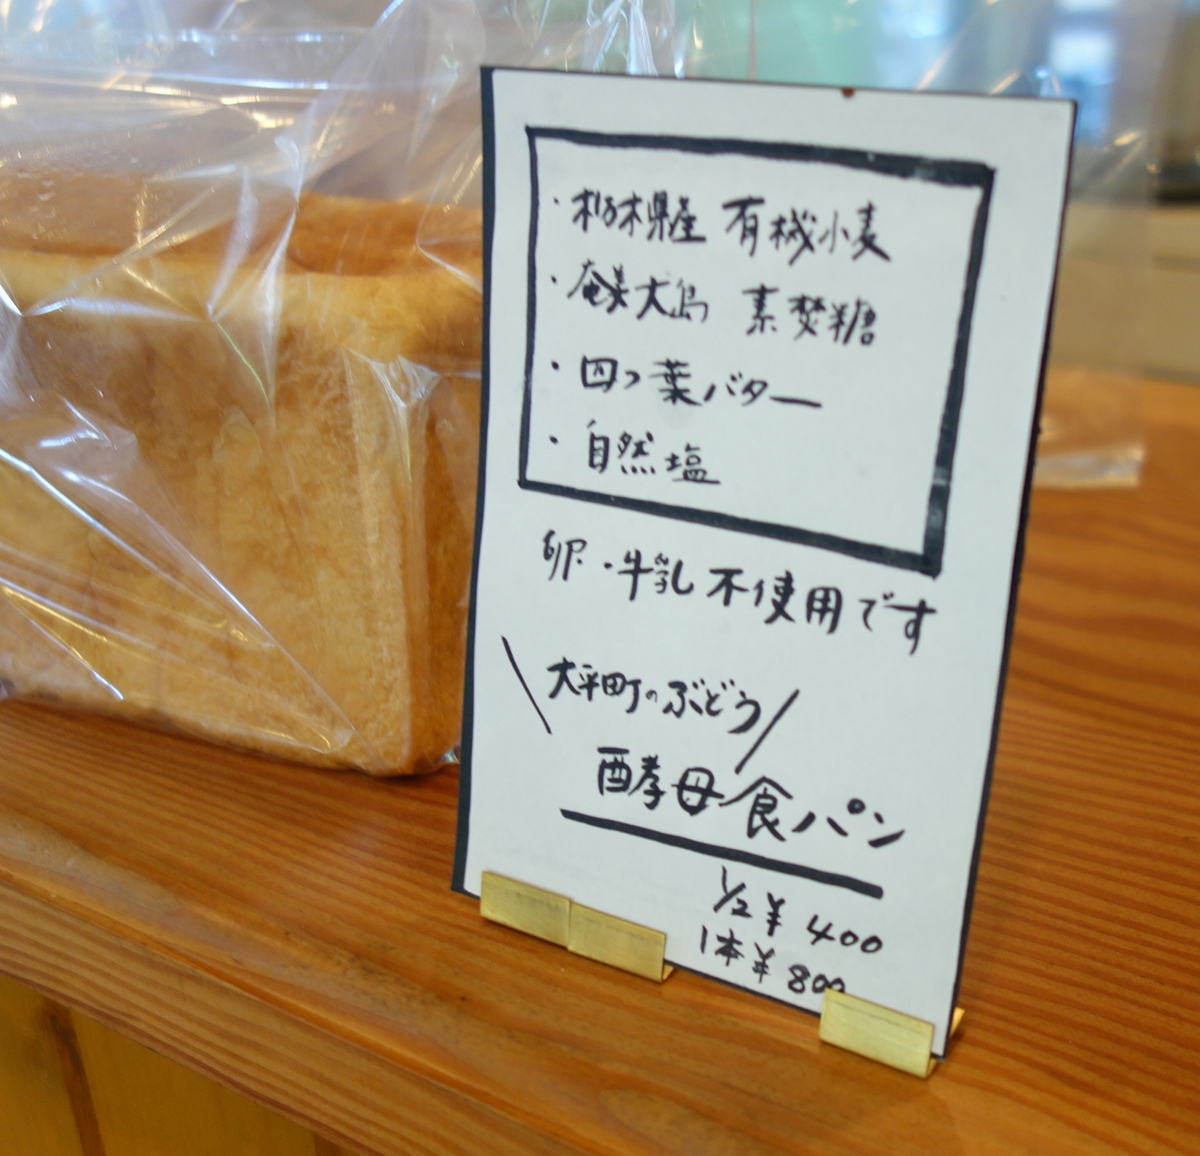 ・栃木県産 有機小麦
・奄美大島 素焚糖
・四つ葉バター
・自然塩
卵・牛乳不使用です
\大平町のぶどう/
酵母食パン
1/2 ¥400
1本¥800